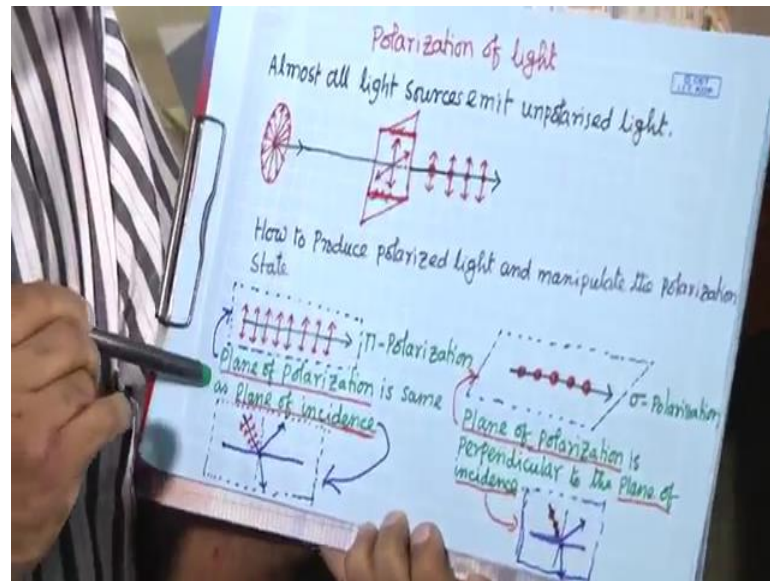 Polarization of light
Almost all light sources emit unpolarised light.
How to Produce polarized light and manipulate the polarization
State
π-Polarization
Plane of polarization is same
as Plane of incidence
σ-Polarisation
Plane of polarization is
perpendicular to the Plane of
incidence